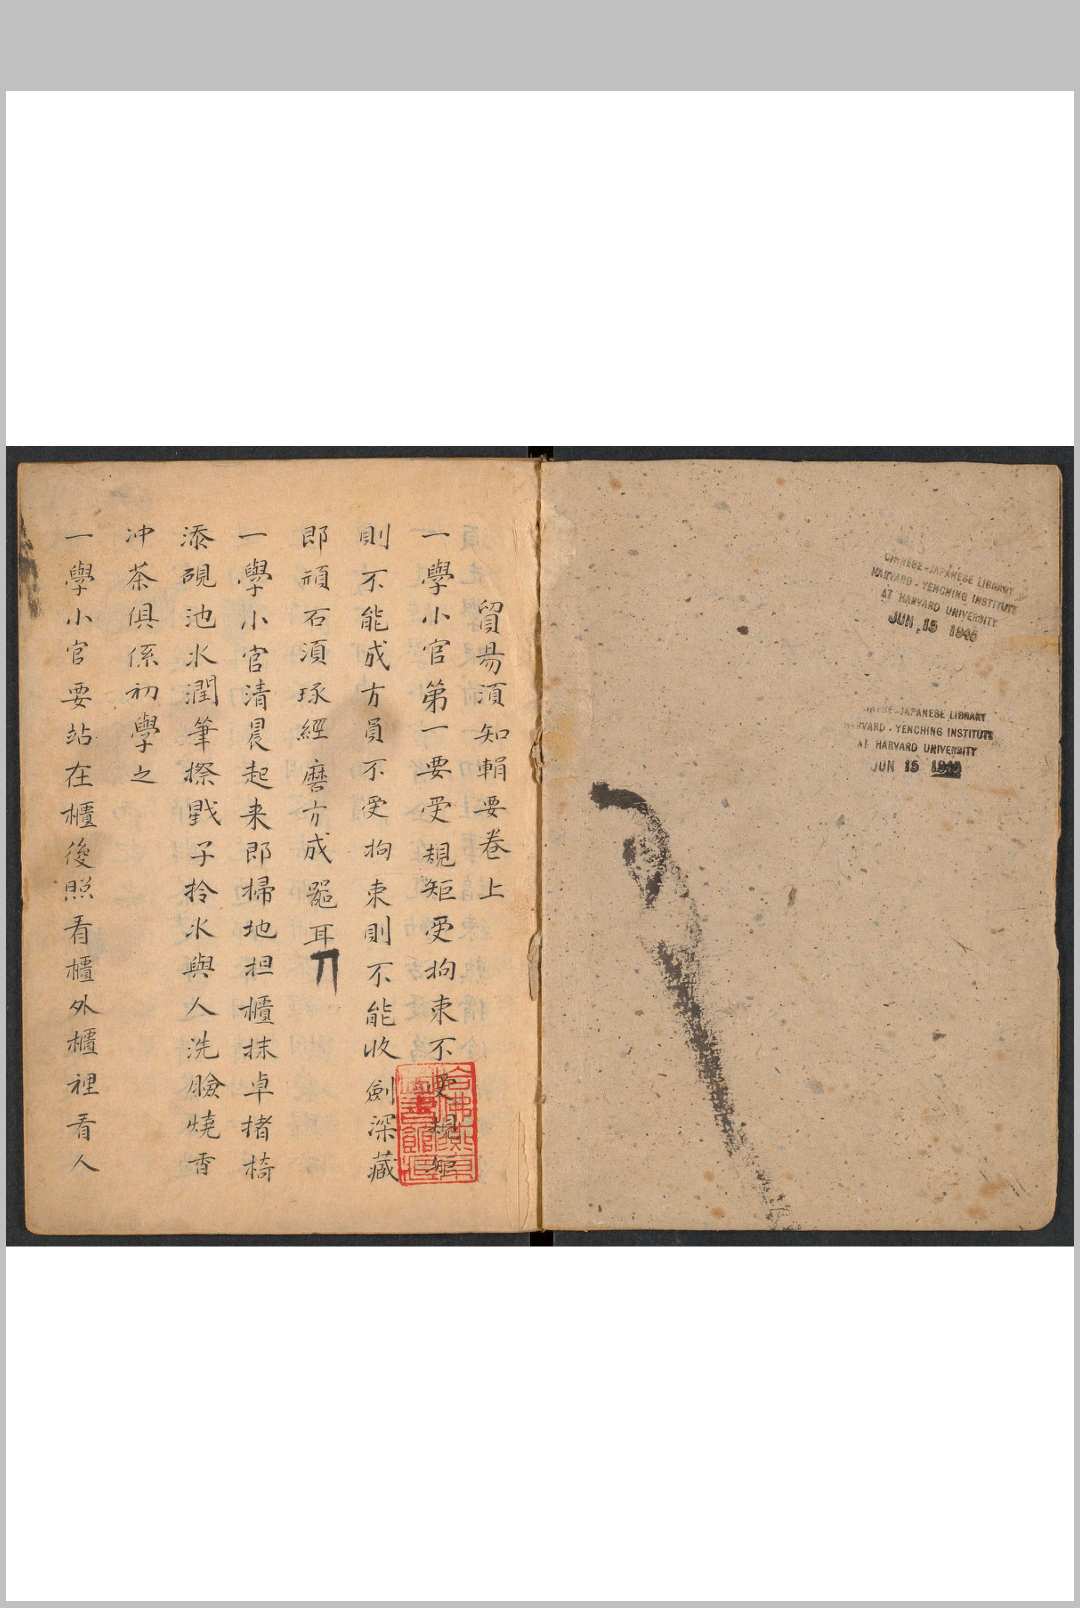 CHINESE-JAPANESE LIBRARY
HARVARD-YENCHING INSTITUTE
AT HARVARD UNIVERSITY
JUN 15 1945
CHINESE-JAPANESE LIBRARY
HARVARD-YENCHING INSTITUTE
AT HARVARD UNIVERSITY
JUN 15
貿易須知輯要卷上
一學小官第一要受規矩受拘束不受規矩
則不能成方員不受拘束則不能收劍深藏
即頑石須琢經磨方成器耳
一學小官清晨起来即掃地担櫃抹卓揩椅
添硯池水潤筆擦戥子拎水與人洗臉燒香
冲茶俱係初學之
一學小官要站在櫃後照看櫃外櫃裡看人
哈佛燕京圖書館藏